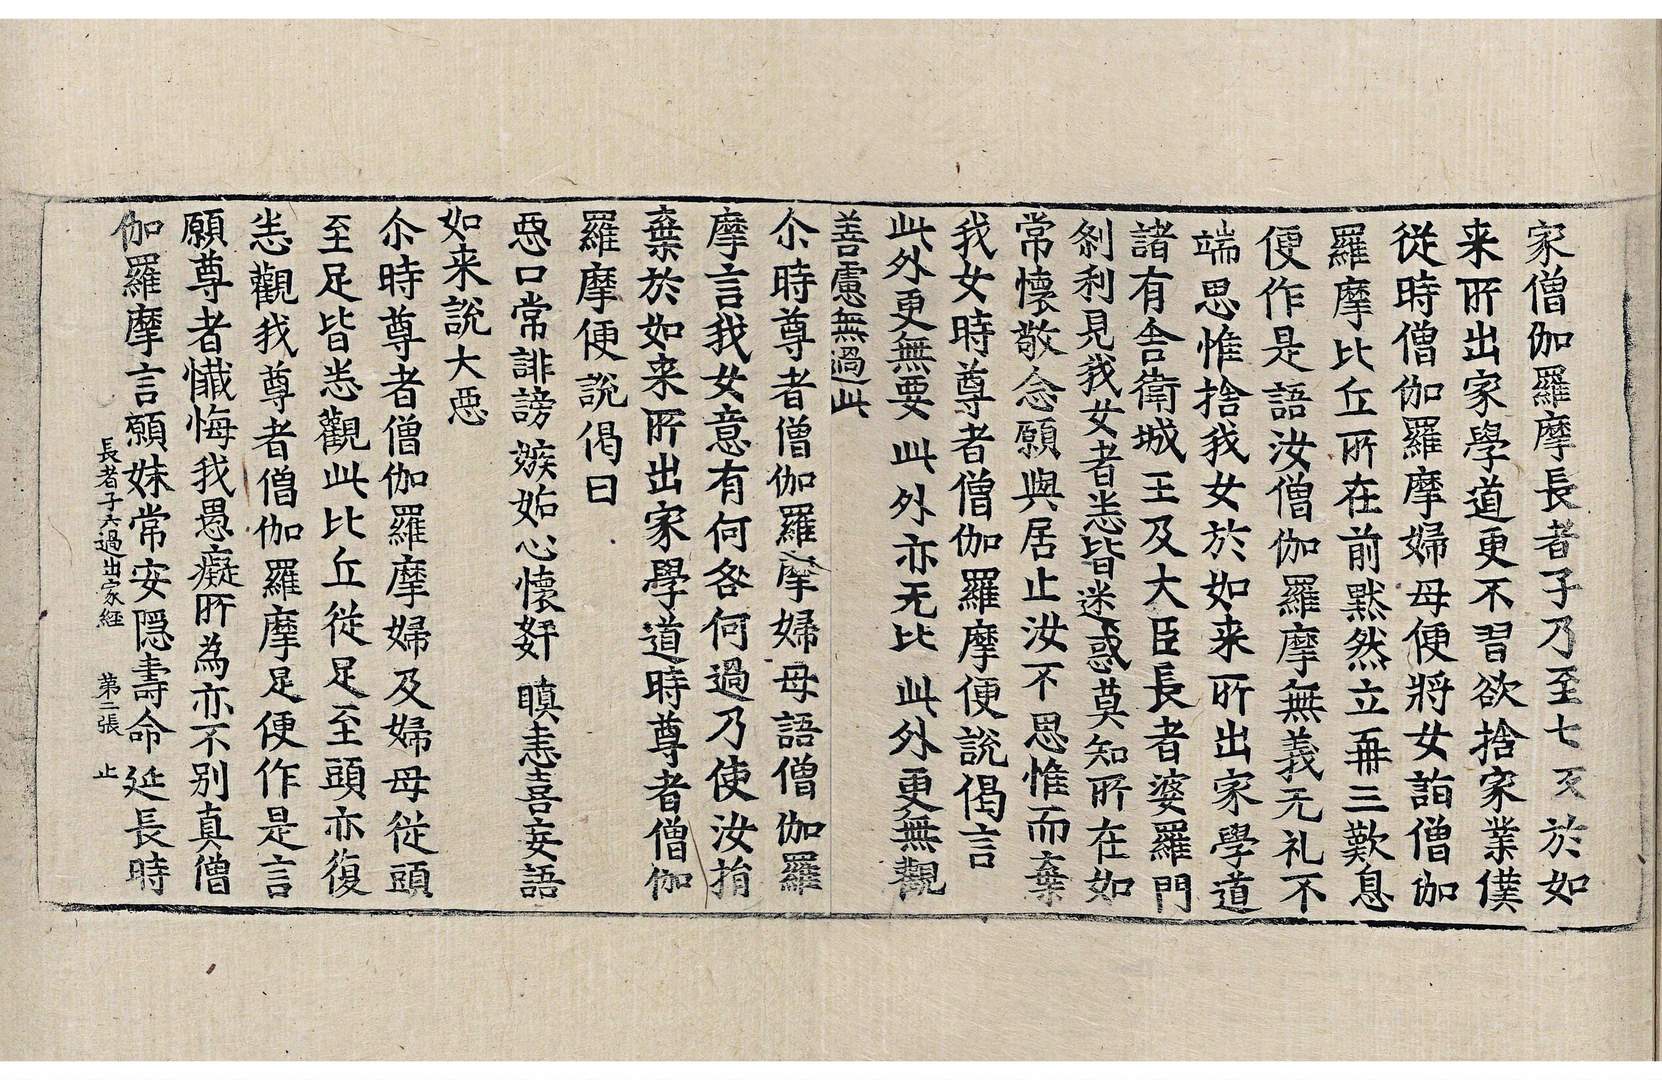 家僧伽羅摩長者子乃至七反於如
来所出家學道更不習欲捨家業僕
從時僧伽羅摩婦母便將女詣僧伽
羅摩比丘所在前黙然立再三歎息
便作是語汝僧伽羅摩無義无礼不
端思惟捨我女於如来所出家學道
諸有舎衛城王及大臣長者婆羅門
刹利見我女者恙皆迷惑莫知所在如
常懷敬念願與居止汝不思惟而棄
我女時尊者僧伽羅摩便說偈言
此外更無要 此外亦无比 此外更無觀
善慮無過此
尒時尊者僧伽羅摩婦母語僧伽羅
摩言我女意有何咎何過乃使汝捐
棄於如来所出家學道時尊者僧伽
羅摩便說偈曰
惡口常誹謗 嫉妬心懷姧 瞋恚喜妄語
如来說大惡
尒時尊者僧伽羅摩婦及婦母從頭
至足皆悉觀此比丘從足至頭亦復
恙觀我尊者僧伽羅摩足便作是言
願尊者懺悔我愚癡所為亦不別真僧
伽羅摩言願妹常安隠壽命延長時
長者子六過出家經 第二張 止